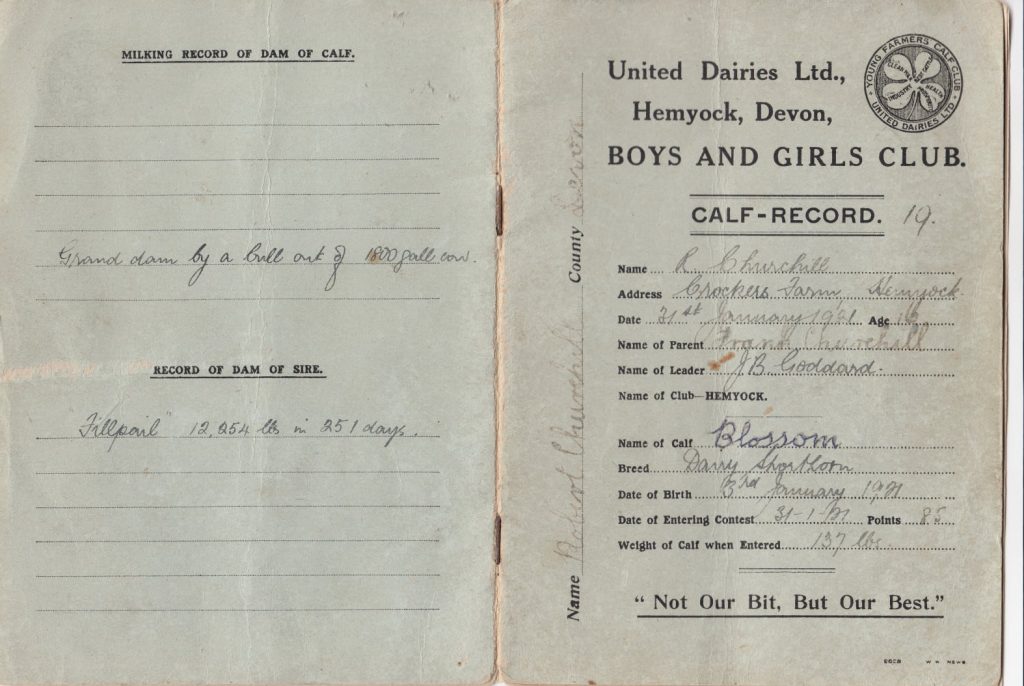 MILKING RECORD OF DAM OF CALF.
Grand dam by a bull out of 1800 gall cow.
RECORD OF DAM OF SIRE.
Fillpail" 12,254 lbs in 251 days.
Name Robert Churchill County Devon
United Dairies Ltd.,
Hemyock, Devon,
BOYS AND GIRLS CLUB.
YOUNG FARMERS CALF CLUB
UNITED DAIRIES LTD
CALF-RECORD. 19.
Name R. Churchill
Address Crockers Farm, Hemyock
Date 31st January 1921 Age
Name of Parent Frank Churchill
Name of Leader J B Goddard.
Name of Club—HEMYOCK.
Name of Calf Blossom
Breed Dairy Shorthorn
Date of Birth 3rd January 1921
Date of Entering Contest 31-1-21 Points 85
Weight of Calf when Entered 137 lbs.
"Not Our Bit, But Our Best."
W W NEWS